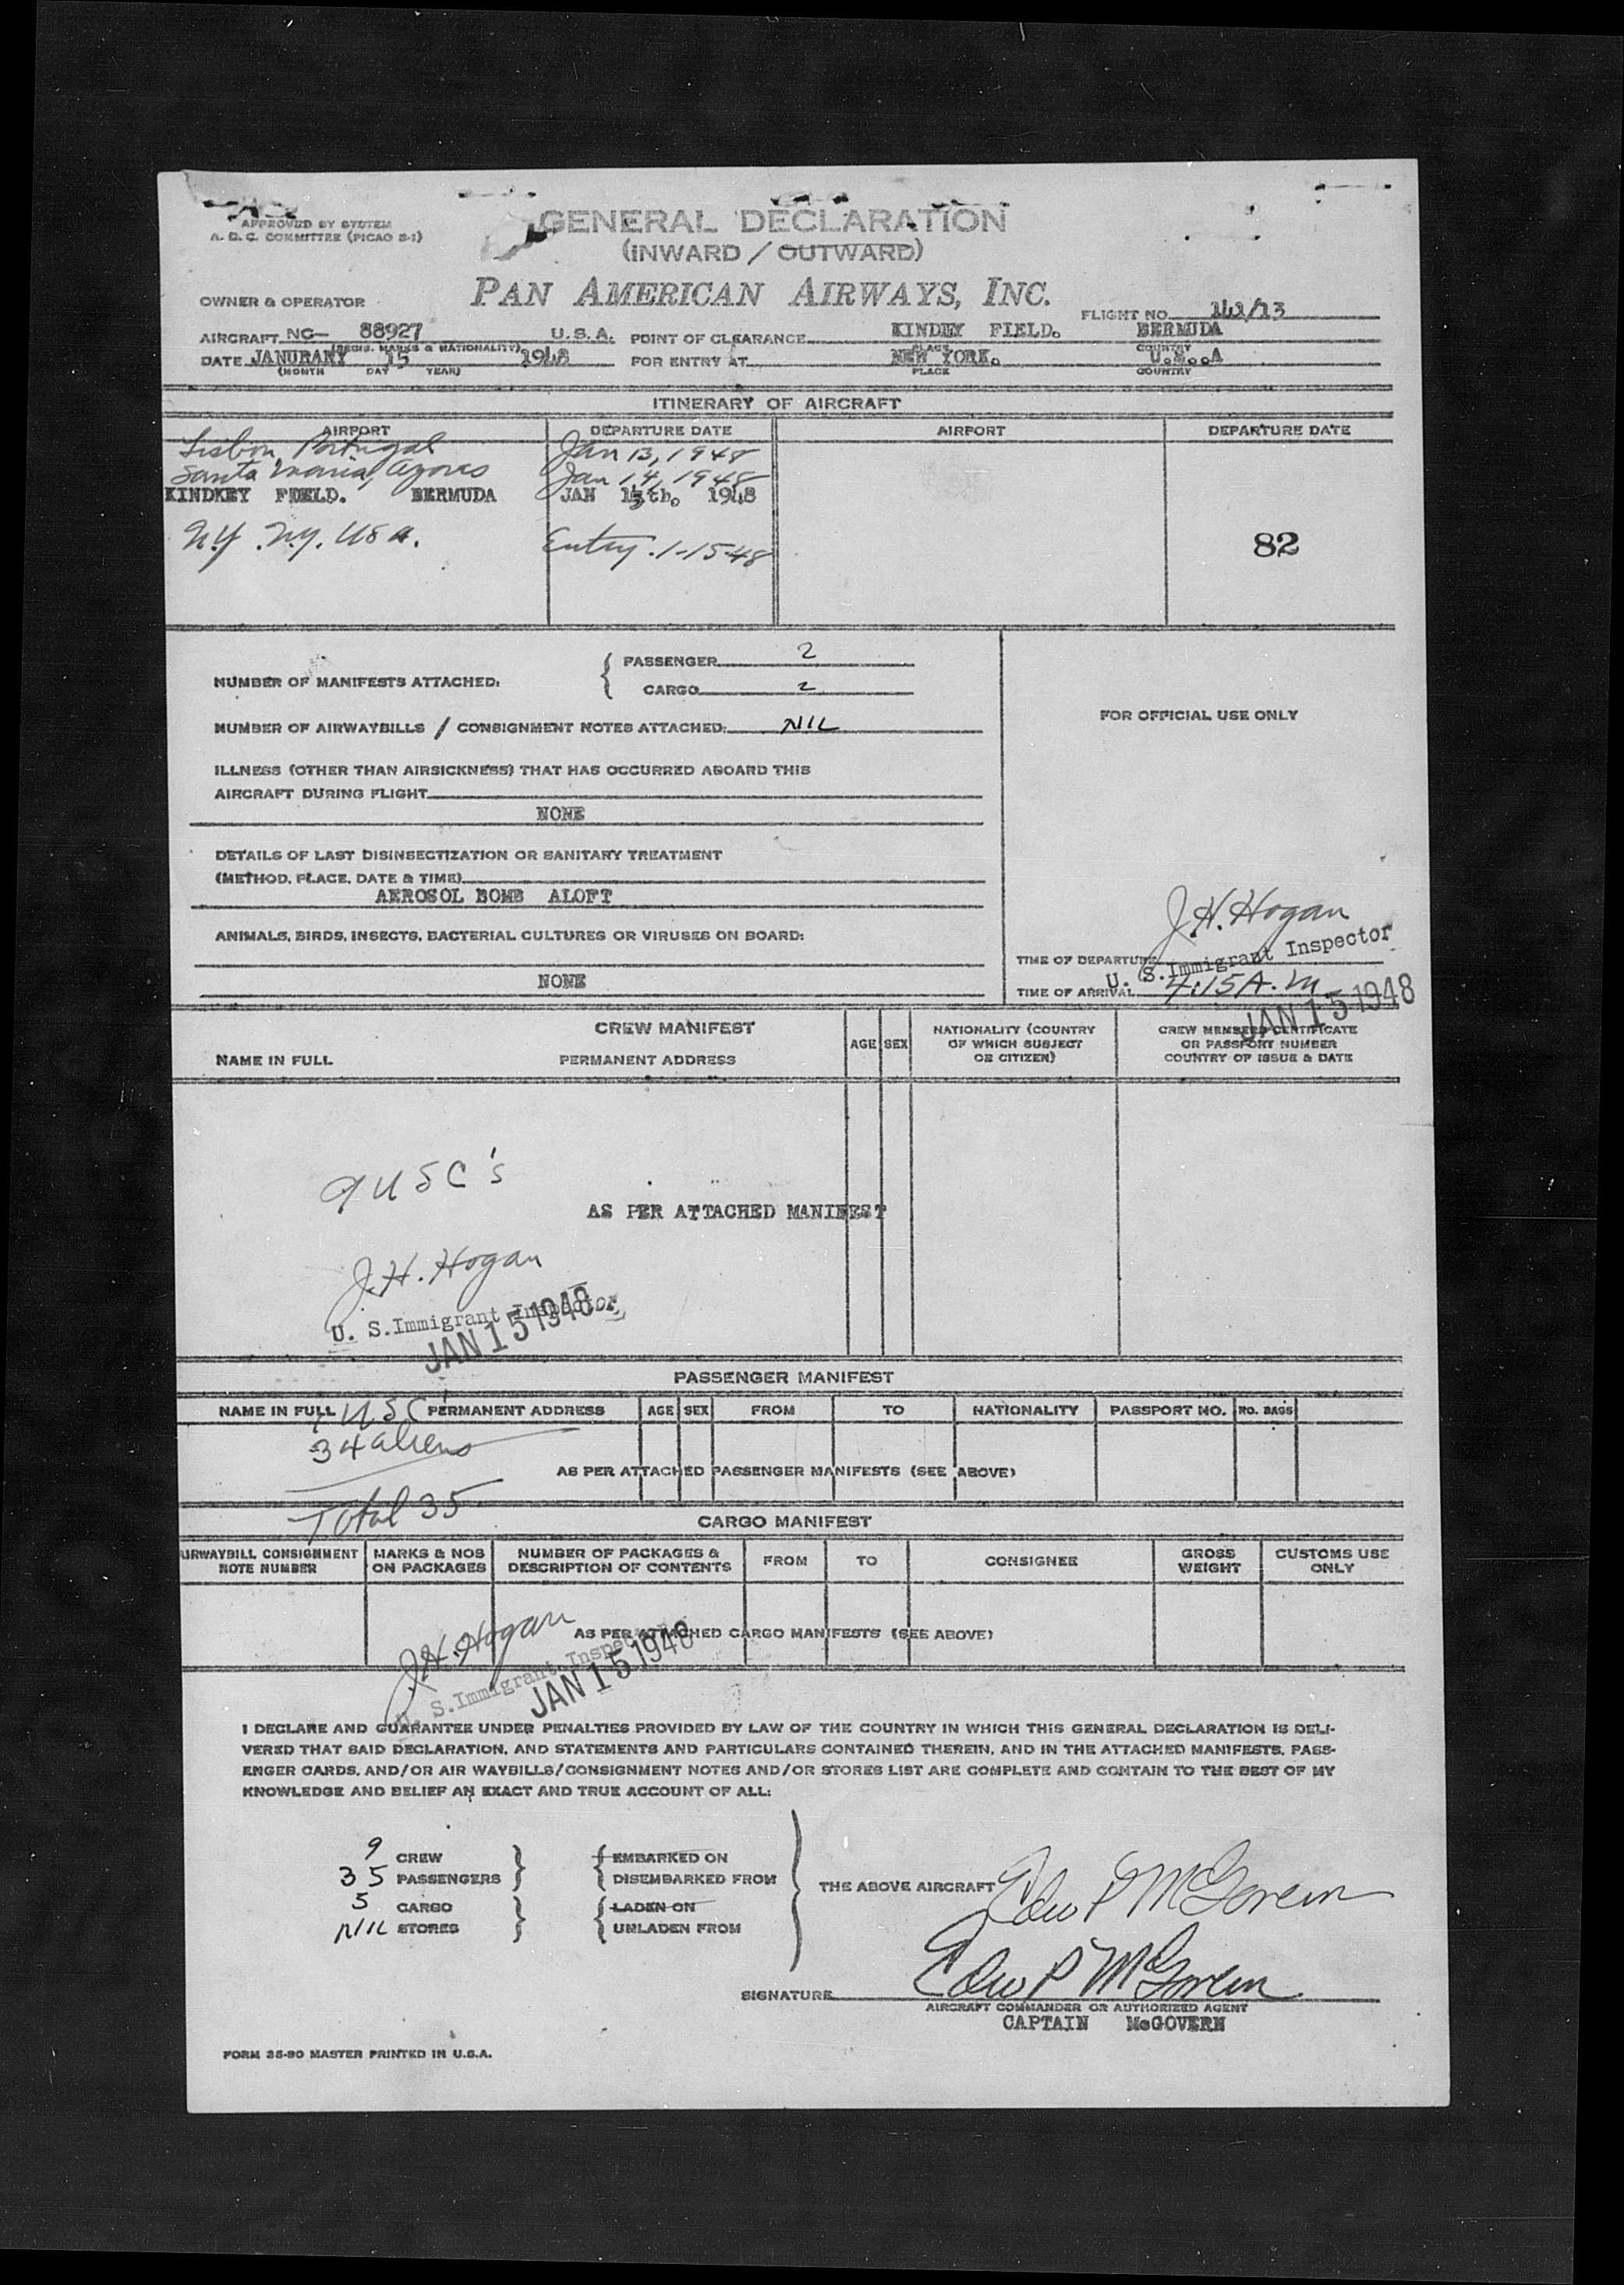 APPROVED BY SYSTEM
A. D. C. COMMITTEE (PICAO S-1)
GENERAL DECLARATION
(INWARD / OUTWARD)
OWNER & OPERATOR PAN AMERICAN AIRWAYS, INC.
FLIGHT NO. 141/13
AIRCRAFT NC- 88927 U.S.A. POINT OF CLEARANCE KINDEY FIELD. BERMUDA
(REGIS. MARKS & NATIONALITY) PLACE COUNTRY
DATE JANURARY 15 1948 FOR ENTRY AT NEW YORK. U.S..A
(MONTH DAY YEAR) PLACE COUNTRY
ITINERARY OF AIRCRAFT
AIRPORT DEPARTURE DATE AIRPORT DEPARTURE DATE
Lisbon, Portugal Jan 13, 1948
Santa Maria, Azores Jan 14, 1948
KINDKEY FIELD. BERMUDA JAN 15th. 1948
N.Y. N.Y. USA. Entry. 1-15-48
82
NUMBER OF MANIFESTS ATTACHED: PASSENGER 2
CARGO 2
NUMBER OF AIRWAYBILLS / CONSIGNMENT NOTES ATTACHED: NIL
FOR OFFICIAL USE ONLY
ILLNESS (OTHER THAN AIRSICKNESS) THAT HAS OCCURRED ABOARD THIS
AIRCRAFT DURING FLIGHT
NONE
DETAILS OF LAST DISINSECTIZATION OR SANITARY TREATMENT
(METHOD, PLACE, DATE & TIME)
AEROSOL BOMB ALOFT
ANIMALS, BIRDS, INSECTS, BACTERIAL CULTURES OR VIRUSES ON BOARD:
NONE
J.H. Hogan
TIME OF DEPARTURE
U. S. Immigrant Inspector
TIME OF ARRIVAL 4:15 A.M
JAN 15 1948
CREW MANIFEST
NAME IN FULL PERMANENT ADDRESS AGE SEX NATIONALITY (COUNTRY OF WHICH SUBJECT OR CITIZEN) CREW MEMBERS CERTIFICATE OR PASSPORT NUMBER COUNTRY OF ISSUE & DATE
9 USC's
AS PER ATTACHED MANIFEST
J.H. Hogan
U. S. Immigrant Inspector
JAN 15 1948
PASSENGER MANIFEST
NAME IN FULL PERMANENT ADDRESS AGE SEX FROM TO NATIONALITY PASSPORT NO. NO. BAGS
1 USC
34 aliens
AS PER ATTACHED PASSENGER MANIFESTS (SEE ABOVE)
Total 35
CARGO MANIFEST
AIRWAYBILL CONSIGNMENT NOTE NUMBER MARKS & NOS ON PACKAGES NUMBER OF PACKAGES & DESCRIPTION OF CONTENTS FROM TO CONSIGNEE GROSS WEIGHT CUSTOMS USE ONLY
J.H. Hogan
AS PER ATTACHED CARGO MANIFESTS (SEE ABOVE)
U. S. Immigrant Inspector
JAN 15 1948
I DECLARE AND GUARANTEE UNDER PENALTIES PROVIDED BY LAW OF THE COUNTRY IN WHICH THIS GENERAL DECLARATION IS DELI-
VERED THAT SAID DECLARATION, AND STATEMENTS AND PARTICULARS CONTAINED THEREIN, AND IN THE ATTACHED MANIFESTS, PASS-
ENGER CARDS, AND/OR AIR WAYBILLS/CONSIGNMENT NOTES AND/OR STORES LIST ARE COMPLETE AND CONTAIN TO THE BEST OF MY
KNOWLEDGE AND BELIEF AN EXACT AND TRUE ACCOUNT OF ALL:
9 CREW EMBARKED ON
35 PASSENGERS DISEMBARKED FROM
THE ABOVE AIRCRAFT Edw P McGovern
5 CARGO LADEN ON
NIL STORES UNLADEN FROM
SIGNATURE Edw P McGovern
AIRCRAFT COMMANDER OR AUTHORIZED AGENT
CAPTAIN McGOVERN
FORM 35-90 MASTER PRINTED IN U.S.A.